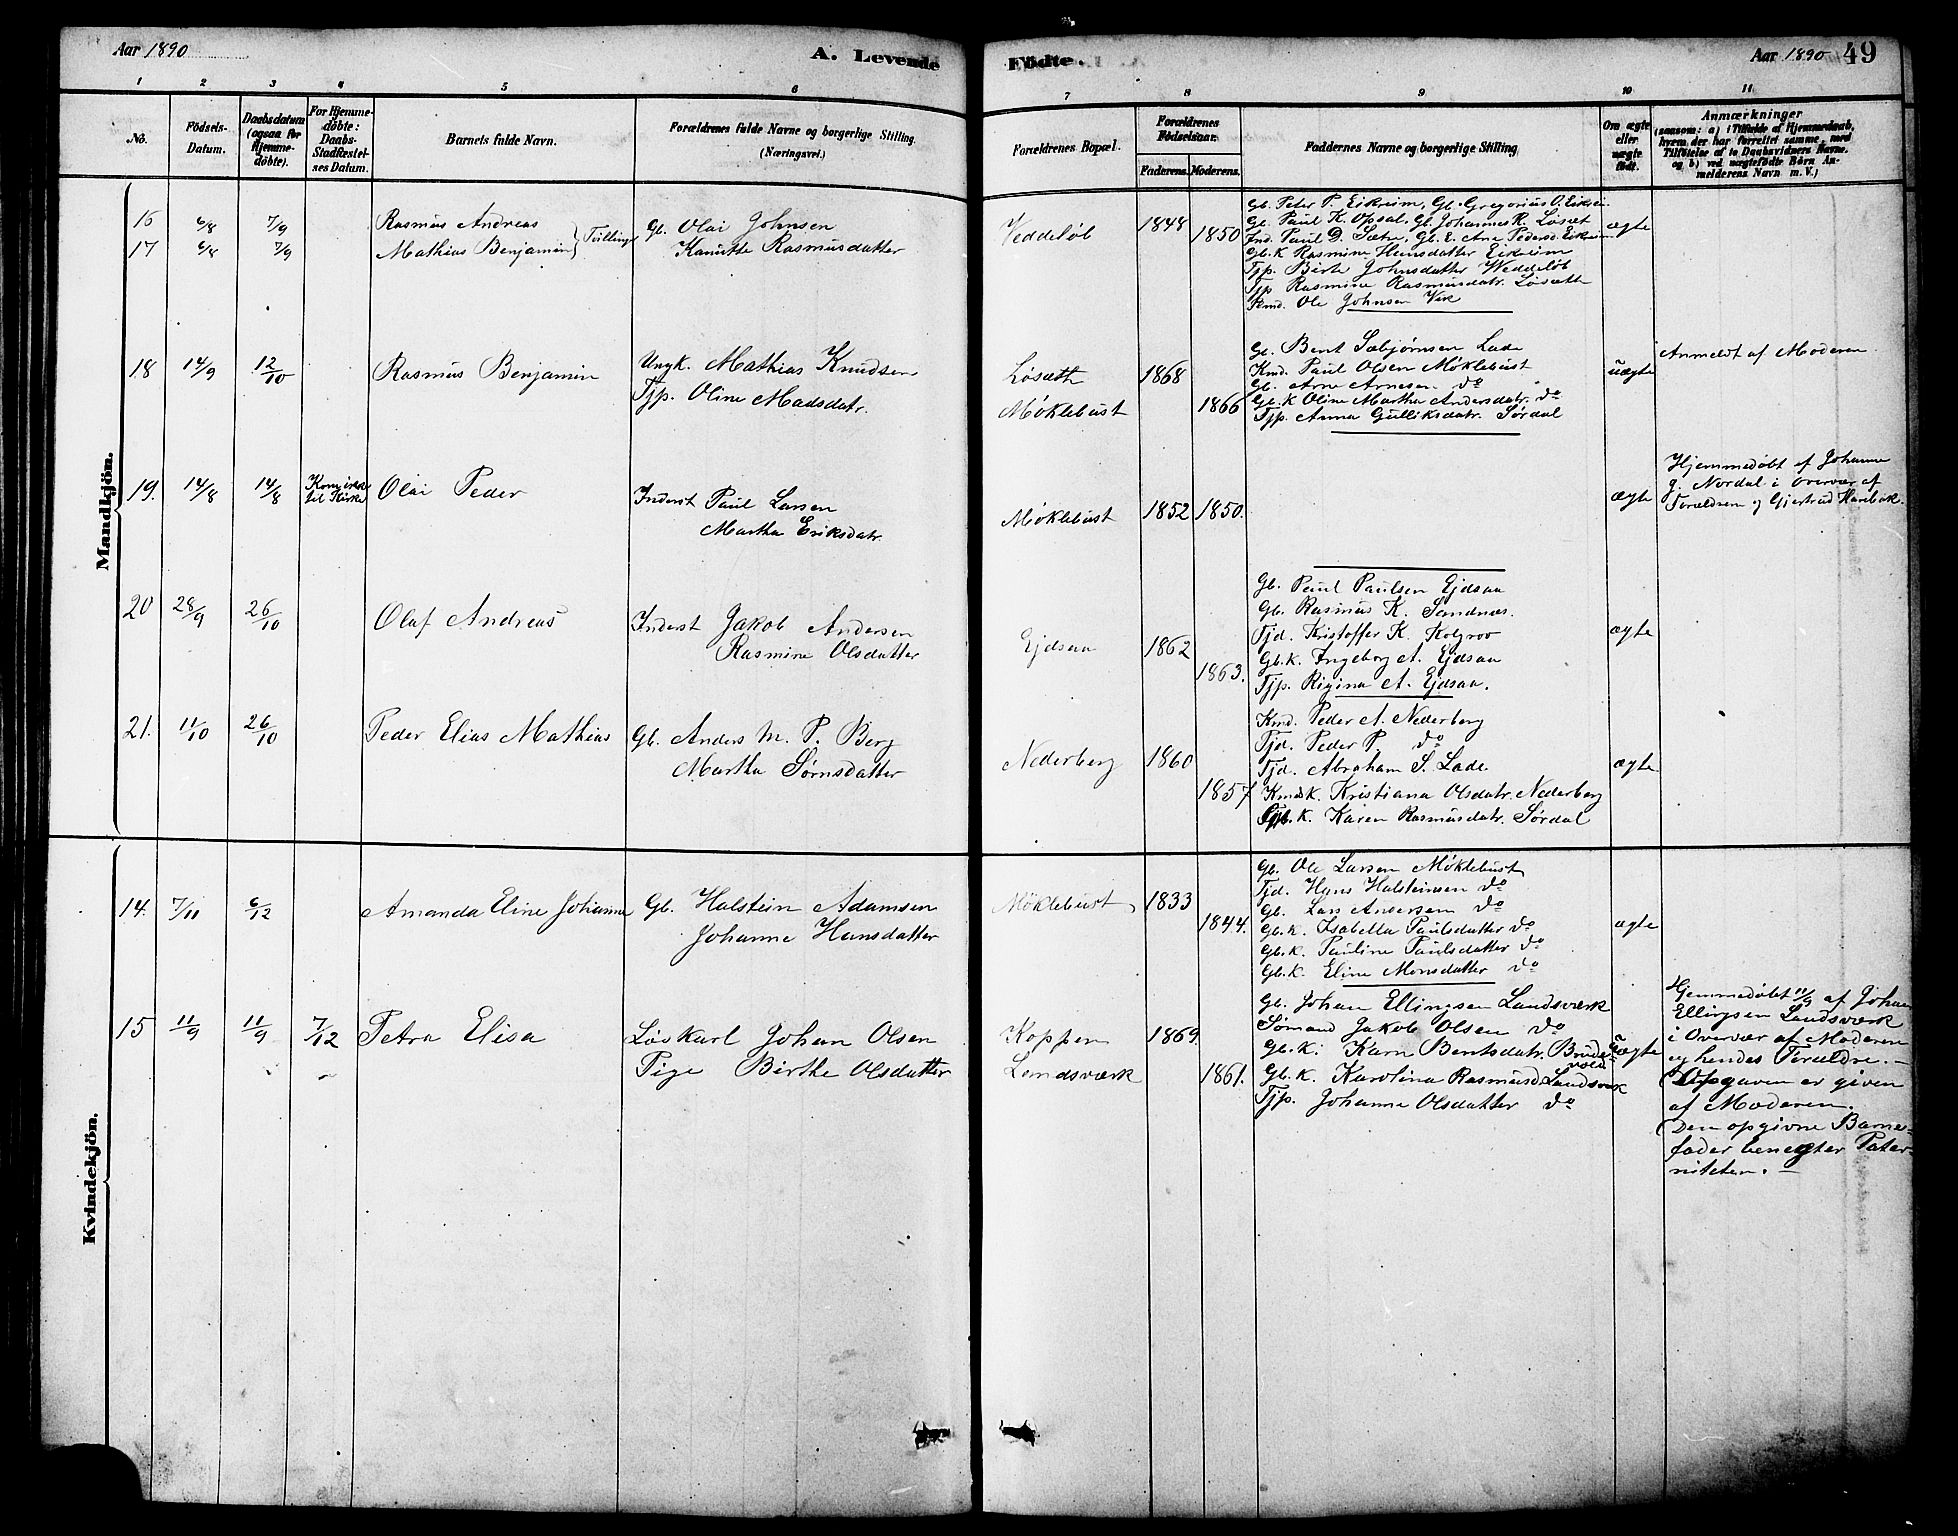 Aar 1890
A. Levende Fødte.
Aar 1890 49
1 2 3 4 5 6 7 8 9 10 11
No.
Fødsels-Datum.
Daabsdatum (ogsaa for Hjemmedøbte).
For Hjemmedøbte: Daabs-Stadfæstelses Datum.
Barnets fulde Navn.
Forældrenes fulde Navne og borgerlige Stilling. (Næringsvei.)
Forældrenes Bopæl.
Forældrenes Fødselsaar.
Faderens. Moderens.
Faddernes Navne og borgerlige Stilling
Om ægte eller uægte født.
Anmærkninger
(saasom: a) i Tilfælde af Hjemmedaab, hvem der har forrettet samme, med Tilføielse af to Daabsvidners Navne, og b) ved uægtefødte Børn Anmelderens Navn m. V.)
Mandkjøn.
16 6/8 7/9 Rasmus Andreas
17 6/8 7/9 Mathias Benjamin } Tvillinger
Gb. Olai Johnsen
Kanutte Rasmusdatter
Veddeløb 1848 1850
Gb. Peter P. Eikrim, Gb. Gregorius O. Eikrim
Gb. Paul K. Opsal, Gb. Johannes R. Løset
Ind. Paul D. Sætre, Gb. E. Ane Pedersd. Eikrim
Gb.K Rasmine Hansdatter Eikrim
Tjp. Birte Johnsdatter Weddeløb
Tjp Rasmine Rasmusdatr. Løsæth
Kmd. Ole Johnsen Vik
ægte
18 14/9 12/10 Rasmus Benjamin
Ungk. Mathias Knudsen
Tjp. Oline Madsdatr.
Løsæth 1868
Møklebust 1866
Gb. Bent Sæbjørnsen Lade
Kmd. Paul Olsen Møklebust
Gb. Arne Arnesen do
Gb.K Oline Martha Andersdatr. do
Tjp. Anna Gulliksdatr. Sørdal
uægte
Anmeldt af Moderen
19. 14/8 14/8 Kom ikke til Kirke
Olai Peder
Inderst Paul Larsen
Martha Eriksdatr.
Møklebust 1852 1850.
ægte
Hjemmedøbt af Johanne
g. Nordal i overvær af
Forældren og Gjertrud Harebak.
20 28/9 26/10 Olaf Andreas
Inderst Jakob Andersen
Rasmine Olsdatter
Ejdsaa 1862 1863.
Gb. Paul Paulsen Ejdsaa
Gb. Rasmus K. Sandnes.
Tjd. Kristoffer K. Kolgrov
Gb.K. Ingeborg A. Ejdsaa
Tjp. Rigina A. Ejdsaa.
ægte
21. 11/10 26/10 Peder Elias Mathias
Gb. Anders M. P. Berg
Martha Sørnsdatter
Nederberg 1860 1857
Kmd. Peder A. Nederberg
Tjd. Peder P. do
Tjd. Abraham S. Lade
Kmds K. Kristiana Olsdatr. Nederberg
Gb. K. Karen Rasmusdatr. Sørdal
ægte.
Kvindekjøn.
14. 7/11 6/12 Amanda Eline Johanne
Gb. Halstein Adamsen
Johanne Hansdatter
Møklebust 1833 1844.
Gb. Ole Larsen Møklebust
Tjd. Hans Halsteinsen do
Gb. Lars Andersen do
Gb.K. Isabella Paulsdatter do
Gb.K. Pauline Paulsdatter do
Gb.K. Eline Monsdatter do
ægte
15 11/9 11/9 7/12 Petra Elisa
Løskarl Johan Olsen
Pige Birthe Olsdatter
Koppen 1869
Landsværk 1861.
Gb. Johan Ellingsen Landsværk
Sømand Jakob Olsen do
Gb.K. Karn Bentsdatr. Brudevold
Gb. K. Karolina Rasmusd. Landsværk
Tjp. Johanne Olsdatter do
uægte
Hjemmedøbt 11/9 af Johan
Ellingsen Landsværk
i Overvær af Moderen
og hendes Forældre. —
(Opgaven er given
af Moderen.
(Den opgivne Barne-
fader benegter Pater-
niteten. —